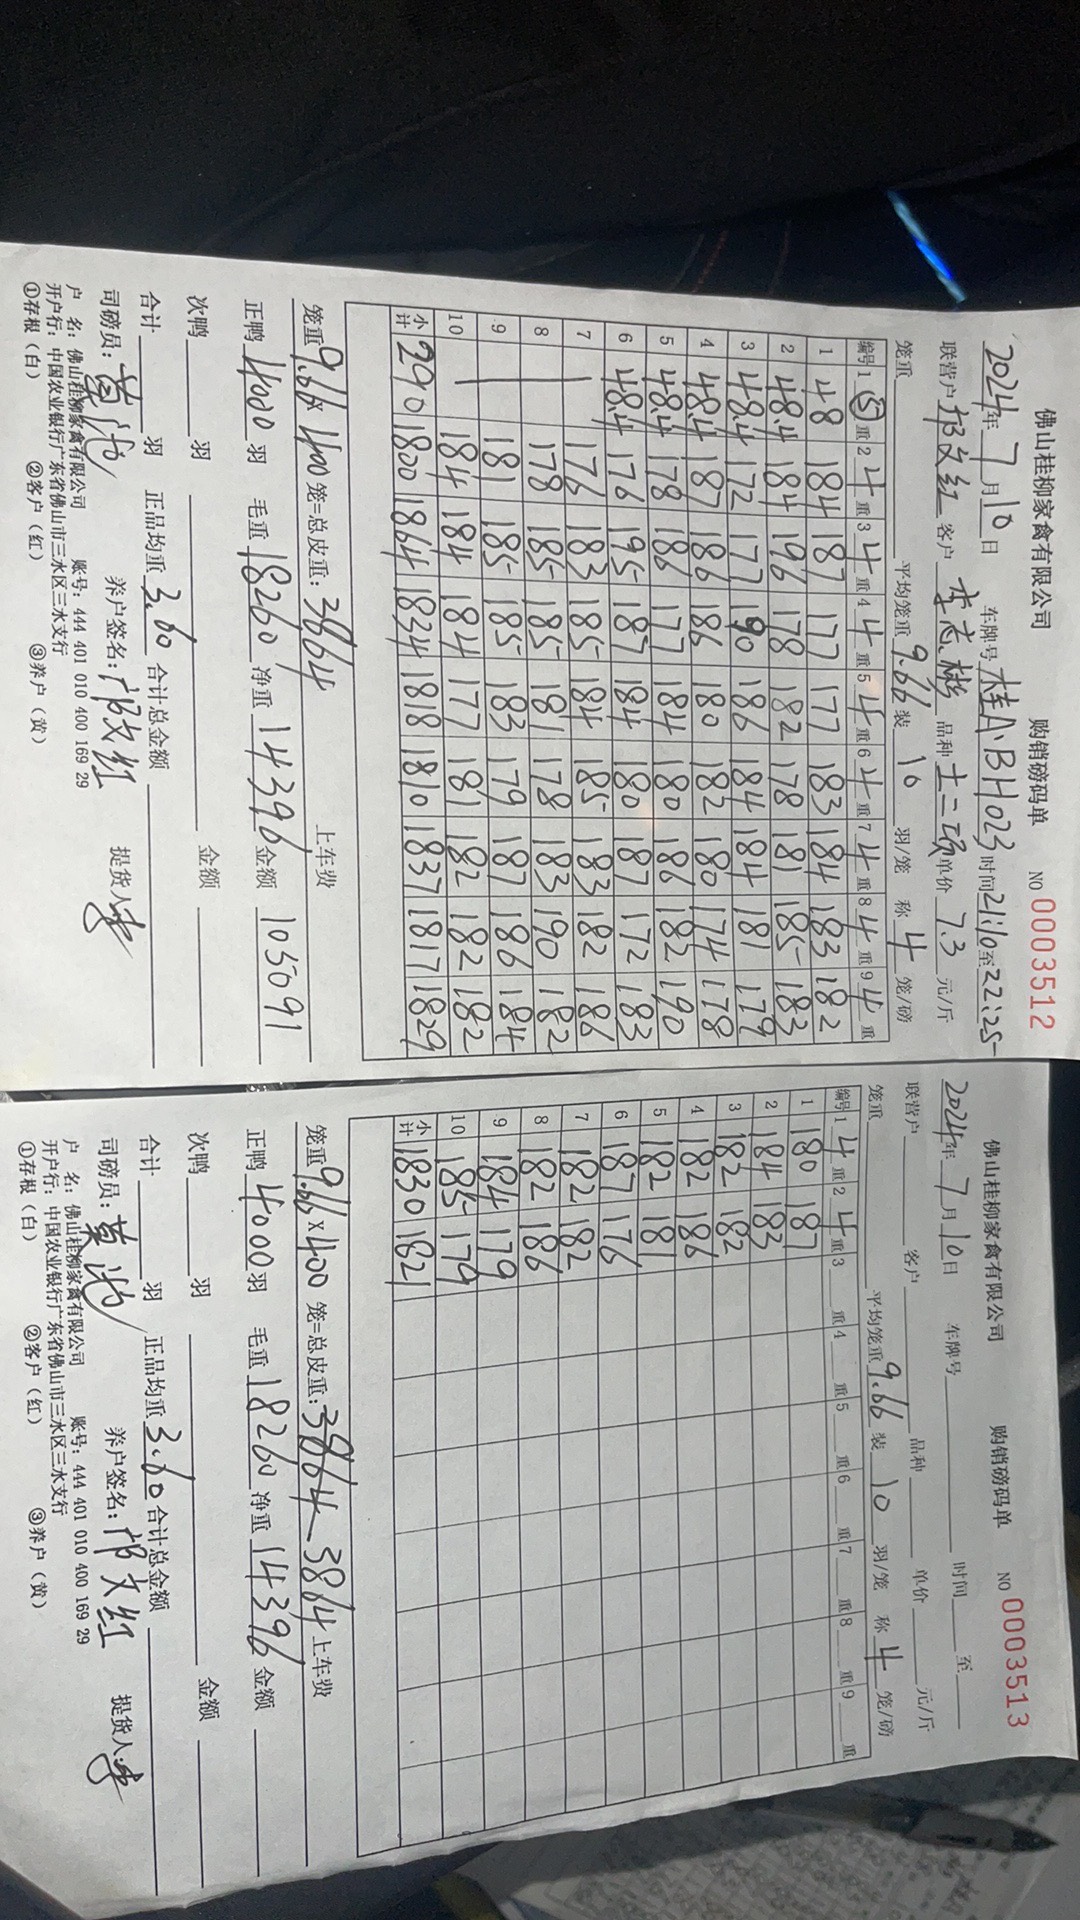 佛山桂柳家禽有限公司 购销磅码单 NO 0003512
2024年7月10日 车牌号 桂A·BH023 时间 21:10至22:25
联营户 邬文红 客户 李志彬 品种 十二场 单价 7.3 元/斤
笼重 平均笼重 9.66 装 10 羽/笼 称 4 笼/磅
编号 1 ⑤ 重 2 4 重 3 4 重 4 4 重 5 4 重 6 4 重 7 4 重 8 4 重 9 4 重
1 48 184 187 177 177 183 184 183 182
2 48.4 184 196 178 182 178 181 185 183
3 48.4 172 177 190 186 184 184 181 179
4 48.4 187 186 186 180 182 180 174 178
5 48.4 178 186 177 184 180 186 182 190
6 48.4 176 195 187 184 180 187 172 183
7 176 183 185 184 185 183 182 186
8 178 185 185 181 178 183 190 182
9 181 185 185 183 179 187 186 184
10 184 184 184 177 181 182 182 182
小计 290 1800 1864 1834 1818 1810 1837 1817 1829
笼重 9.66 × 400 笼=总皮重: 3864 上车费
正鸭 4000 羽 毛重 18260 净重 14396 金额 105091
次鸭 羽 金额
合计 羽 正品均重 3.60 合计总金额
司磅员: 养户签名: 邬文红 提货人: 李
户 名: 佛山桂柳家禽有限公司 账号: 444 401 010 400 169 29
开户行: 中国农业银行广东省佛山市三水区三水支行
①存根(白) ②客户(红) ③养户(黄)
佛山桂柳家禽有限公司 购销磅码单 NO 0003513
2024年7月10日 车牌号 时间 至
联营户 客户 品种 单价 元/斤
笼重 平均笼重 9.66 装 10 羽/笼 称 4 笼/磅
编号 1 4 重 2 4 重 3 重 4 重 5 重 6 重 7 重 8 重 9 重
1 180 187
2 184 183
3 182 182
4 182 186
5 182 181
6 187 176
7 182 182
8 182 186
9 184 179
10 185 179
小计 1830 1821
笼重 9.66 × 400 笼=总皮重: 3864 3864 上车费
正鸭 4000 羽 毛重 18260 净重 14396 金额
次鸭 羽 金额
合计 羽 正品均重 3.60 合计总金额
司磅员: 养户签名: 邬文红 提货人: 李
户 名: 佛山桂柳家禽有限公司 账号: 444 401 010 400 169 29
开户行: 中国农业银行广东省佛山市三水区三水支行
①存根(白) ②客户(红) ③养户(黄)